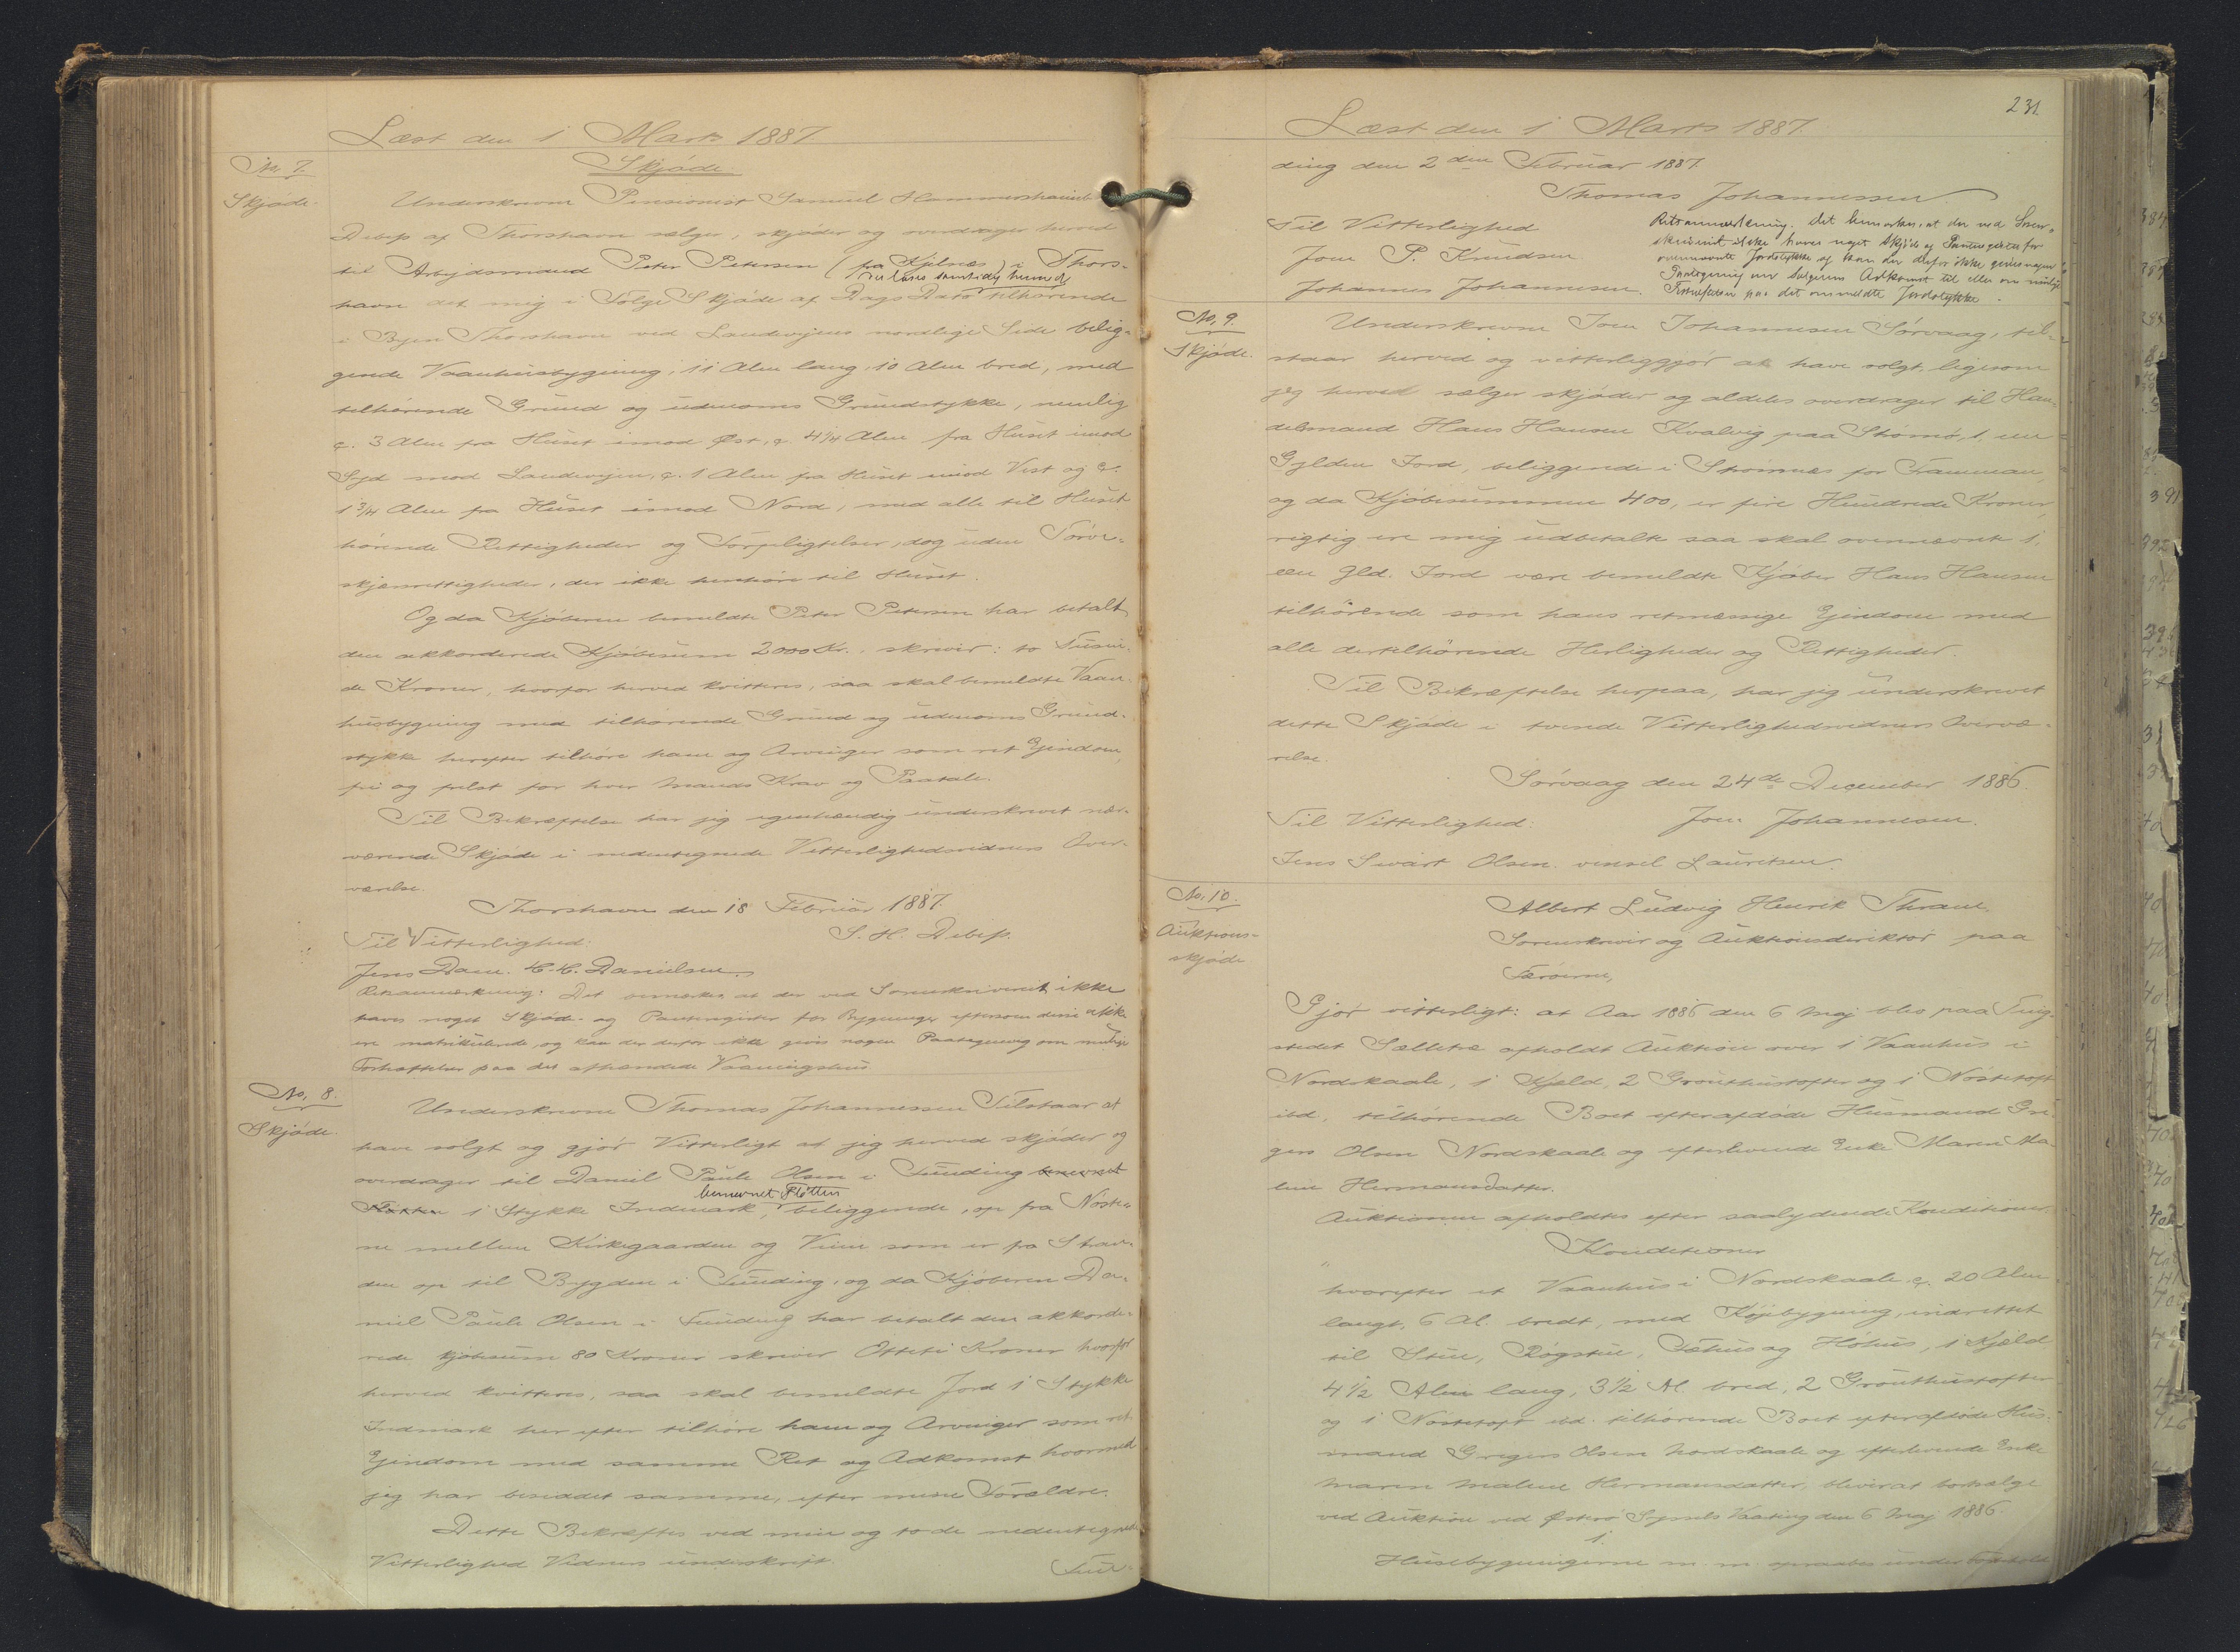 Læst den 1 Marts 1887
No. 7.
Skjøde
Skjøde.
Underskrevne Pensionist Samuel Hammershaimb
Debes af Thorshavn sælger, skjøder og overdrager herved
til Arbejdsmand Peter Petersen (fra Kjelnæs) i Thors-
havn det mig i Følge Skjøde af Dags Dato tilhørende
i Byen Thorshavn ved Landevejens nordlige Side belig-
gende Vaanhusbygning, 11 Alen lang, 10 Alen bred, med
tilhørende Grund og udenoms Grundstykke, nemlig
c. 3 Alen fra Huset imod Øst, c. 4 1/4 Alen fra Huset imod
Syd mod Landevejen, c. 1 Alen fra Huset imod Vest og c.
1 3/4 Alen fra Huset imod Nord, med alle til Huset
hørende Rettigheder og Forpligtelser, dog uden Tørve-
skjærrettigheder, der ikke henhøre til Huset.
Og da Kjøberen bemeldte Peter Petersen har betalt
den akkorderede Kjøbesum 2000 Kr., skriver: to Tusin-
de Kroner, hvorfor herved kvitteres, saa skal bemeldte Vaan-
husbygning med tilhørende Grund og udenoms Grund-
stykke herefter tilhøre ham og Arvinger som ret Ejendom,
fri og frelst for hver Mands Krav og Paatale.
Til Bekræftelse har jeg egenhændig underskrevet nær-
værende Skjøde i nedentegnede Vitterlighedsvidners Over-
værelse.
Thorshavn den 18 Februar 1887.
Til Vitterlighed: S. H. Debes.
Jens Dam. H. H. Danielsen.
Retsanmærkning: Det bemærkes at der ved Sorenskriveriet ikke
haves noget Skjøde- og Panteregister for Bygninger eftersom disse ikke
ere matrikulerede, og kan der derfor ikke gives nogen Paategning om mulige
Forhæftelser paa det afhændede Vaaningshus
No. 8.
Skjøde.
Underskrevne Thomas Johannessen Tilstaar at
have solgt og gjør Vitterligt at jeg herved skjøder og
overdrager til Daniel Paule Olsen i Funding benævnet
Fløtten 1 Stykke Indmark, benævnet Fløtten beliggende, op fra Nøste-
ne mellem Kirkegaarden og Veien som er fra Stran-
den op til Bygden i Funding, og da Kjøberen Da-
niel Paule Olsen i Funding har betalt den akkorde-
rede kjøbesum 80 Kroner skriver Otteti Kroner hvorfor
herved kvitteres, saa skal bemeldte Jord 1 Stykke
Indmark her efter tilhøre ham og Arvinger som ret
Ejendom med samme Ret og Adkomst hvormed
jeg har besiddet samme, efter mine Forældre.
Dette Bekræftes ved min og to de nedentegnede
Vitterlighed Vidners underskrift.
Fun-
231.
Læst den 1 Marts 1887.
ding den 2den Februar 1887.
Thomas Johannessen
Til Vitterlighed
Joen P. Knudsen
Johannes Johannesen.
Retsanmærkning: Det bemærkes, at der ved Soren-
skriveriet ikke haves noget Skjøde og Panteregister for
ovennævnte Jordstykke og kan der derfor ikke gives nogen
Paategning om Sælgerens Adkomst til eller om mulige
Forhæftelser paa det ommeldte Jordstykke.
No. 9.
Skjøde.
Underskrevne Joen Johannesen Sørvaag, til-
staar herved og vitterliggjør at have solgt, ligesom
jeg herved sælger skjøder og aldeles overdrager til Han-
delsmand Hans Hansen Kvalvig paa Strømø, 1, een
Gylden Jord, beliggende i Strømnæs
og da Kjøbesummen 400, er fire Hundrede Kroner,
rigtig ere mig udbetalte saa skal ovennævnte 1,
een Gld. Jord være bemeldte Kjøber Hans Hansen
tilhørende som hans retmæssige Ejendom med
alle dertilhørende Herligheder og Rettigheder.
Til Bekræftelse herpaa, har jeg underskrevet
dette Skjøde i tvende Vitterlighedsvidners Overvæ-
relse.
Sørvaag den 24de December 1886.
Til Vitterlighed: Joen Johannesen.
Jens Sivart Olsen. Lauritsen.
No. 10.
Auktions-
skjøde
Albert Ludvig Henrik Thrane,
Sorenskriver og Auktionsdirektør paa
Færøerne,
Gjør vitterligt: at Aar 1886 den 6 Maj blev paa Ting-
stedet Sælletræ afholdt Auktion over 1 Vaanhus i
Nordskaale, 1 Kjeld, 2 Grouthustofter og 1 Nøstetoft
ibd. tilhørende Boet efter afdøde Husmand Gre-
gers Olsen Nordskaale og efterlevende Enke Maren Ma-
lene Hermansdatter.
Auktionen afholdtes efter saalydende Konditioner.
Konditioner
hvorefter et Vaanhus i Nordskaale c. 20 Alen
langt, 6 Al. bredt, med Køjebygning, indrettet
til Stue, Røgstue, Fæhus og Høhus, 1 Kjeld
4 1/2 Alen lang, 3 1/2 Al. bred, 2 Grouthustofter
og 1 Nøstetoft ibd. tilhørende Boet efter afdøde Hus-
mand Gregers Olsen Nordskaale og efterlevende Enke
Maren Malene Hermansdatter, bliver at bortsælge
ved Auktion ved Østerø Syssels Vaarting den 6 Maj 1886.
1.
Husebygningerne m. m. opraabes under Forbehold